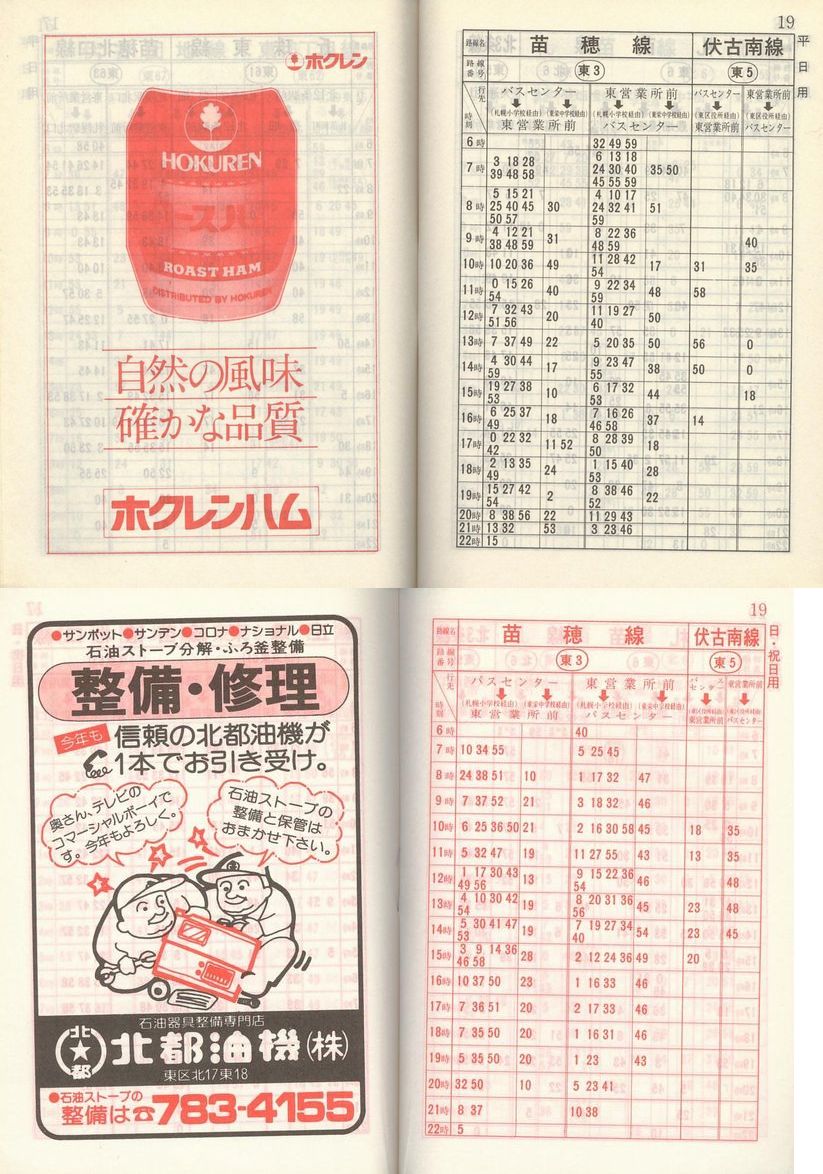 ホクレン
HOKUREN
ROAST HAM
DISTRIBUTED BY HOKUREN
自然の風味
確かな品質
ホクレンハム
19
平日用
路線名 苗穂線 伏古南線
路線番号 東3 東5
行先 バスセンター 東営業所前 バスセンター 東営業所前
(札幌小学校経由) (東栄中学校経由) (札幌小学校経由) (東栄中学校経由) (東区役所経由) (東区役所経由)
時刻 東営業所前 バスセンター 東営業所前 バスセンター
6時 32 49 59
7時 3 18 28 39 48 58 6 13 18 24 30 40 45 55 59 35 50
8時 5 15 21 25 40 45 50 57 30 4 10 17 24 32 41 59 51
9時 4 12 21 38 48 59 31 8 22 36 48 59 40
10時 10 20 36 49 11 28 42 54 17 31 35
11時 0 15 26 54 40 9 22 34 59 48 58
12時 7 32 43 51 56 20 11 19 27 40 50
13時 7 37 49 22 5 20 35 50 56 0
14時 4 30 44 59 17 9 23 47 55 38 50 0
15時 19 27 38 53 10 6 17 32 53 44 18
16時 6 25 37 49 18 7 16 26 46 58 37 14
17時 0 22 32 42 11 52 8 28 39 50 18
18時 2 13 35 49 24 1 15 40 53 28
19時 15 27 42 54 2 8 38 46 52 22
20時 8 38 56 22 11 29 43
21時 13 32 53 3 23 46
22時 15
●サンポット●サンデン●コロナ●ナショナル●日立
石油ストーブ分解・ふろ釜整備
整備・修理
今年も 信頼の北都油機が
1本でお引き受け。
奥さん、テレビの
コマーシャルボーイで
す。今年もよろしく。
石油ストーブの
整備と保管は
おまかせ下さい。
石油器具整備専門店
北★都 北都油機(株)
東区北17東18
●石油ストーブの
整備は☎783-4155
19
日・祝日用
路線名 苗穂線 伏古南線
路線番号 東3 東5
行先 バスセンター 東営業所前 バスセンター 東営業所前
(札幌小学校経由) (東栄中学校経由) (札幌小学校経由) (東栄中学校経由) (東区役所経由) (東区役所経由)
時刻 東営業所前 バスセンター 東営業所前 バスセンター
6時 40
7時 10 34 55 5 25 45
8時 24 38 51 10 1 17 32 47
9時 7 37 52 21 3 18 32 46
10時 6 25 36 50 21 2 16 30 58 45 18 35
11時 5 32 47 19 11 27 55 43 13 35
12時 1 17 30 43 49 56 13 9 15 22 36 54 46 48
13時 4 10 30 42 54 19 8 20 31 36 56 45 23 48
14時 5 30 41 47 53 19 7 19 27 34 40 54 23 45
15時 3 9 14 36 46 58 28 2 12 24 36 49 20
16時 10 37 50 23 1 16 33 46
17時 7 36 51 20 2 17 33 46
18時 7 35 50 20 1 16 31 46
19時 5 35 50 20 1 23 43
20時 32 50 10 5 23 41
21時 8 37 10 38
22時 5